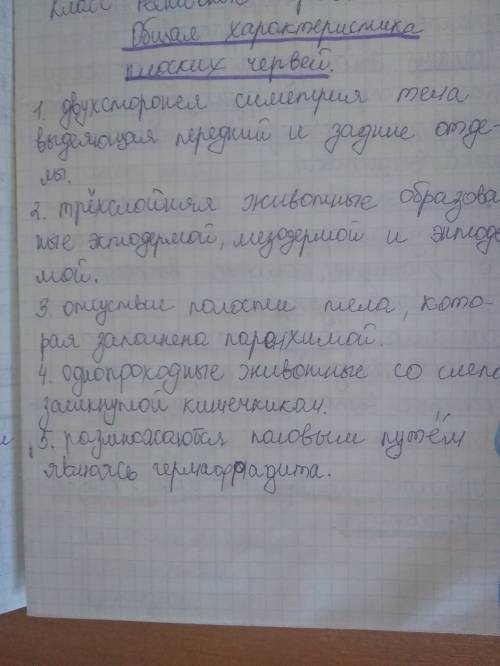 Класс
Общая характеристика
плоских червей.
1. двухсторонея симетрия тела
выделяющая передний и задние отде-
лы.
2. трёхслойняя животные образова
ные эктодермой, мезодермой и энтоде
мой.
3. отцуствие полости тела, кото-
рая заполнена паронхимой.
4. однопроходные животные со слепо
замкнутой кишечником.
5. размножаются половым путём
являясь гермаофрадита.